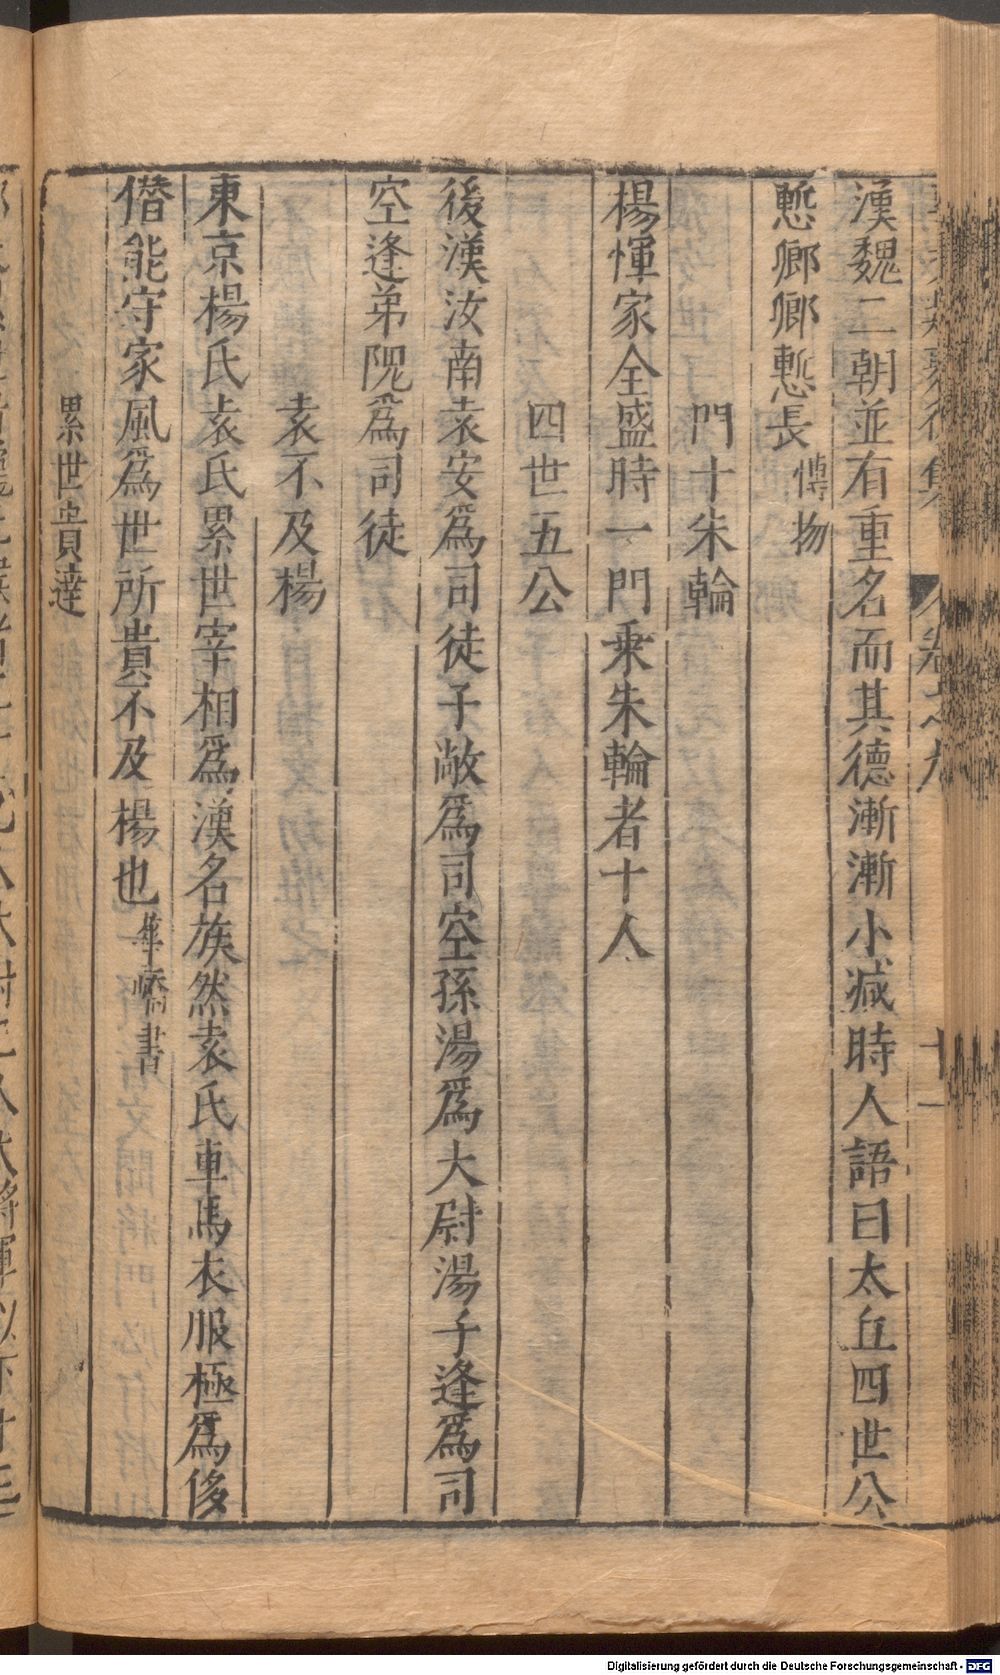 漢魏二朝並有重名而其德漸漸小減時人語曰太丘四世公
慙卿卿慙長 博物
門十朱輪
楊惲家全盛時一門乘朱輪者十人
四世五公
後漢汝南袁安爲司徒子敞爲司空孫湯爲大尉湯子逢爲司
空逢弟隗爲司徒
袁不及楊
東京楊氏袁氏累世宰相爲漢名族然袁氏車馬衣服極爲侈
僭能守家風爲世所貴不及楊也 華嶠書
累世貴達
Digitalisierung gefördert durch die Deutsche Forschungsgemeinschaft - DFG